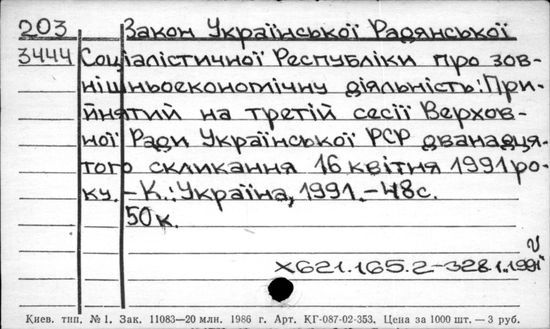 203 Закон Української Радянської
3444 Соціалістичної Республіки про зов-
нішньоекономічну діяльність: При-
йнятий на третій сесії Верхов-
ної Ради Української РСР дванадця-
того скликання 16 квітня 1991 ро-
ку. – К.: Україна, 1991. – 48 с.
50 к.
Х621.165.2-328.1„1991”
Киев. тип. № 1. Зак. 11083—20 млн. 1986 г. Арт. КГ-087-02-353. Цена за 1000 шт. — 3 руб.